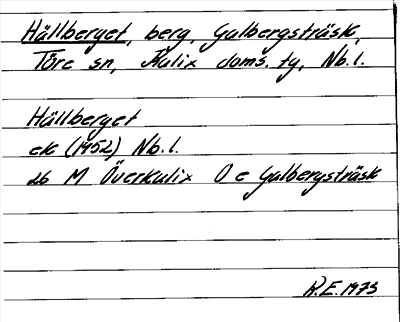 Hällberget, berg, Galbergsträsk,
Töre sn, Kalix doms. tg, Nb. l.
Hällberget
ek (1952) Nb. l.
26 M Överkalix O e Galbergsträsk
R.E. 1973